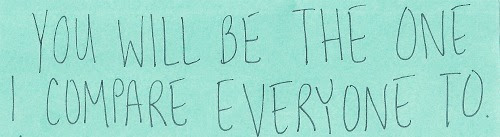 YOU WILL BE THE ONE
I COMPARE EVERYONE TO.